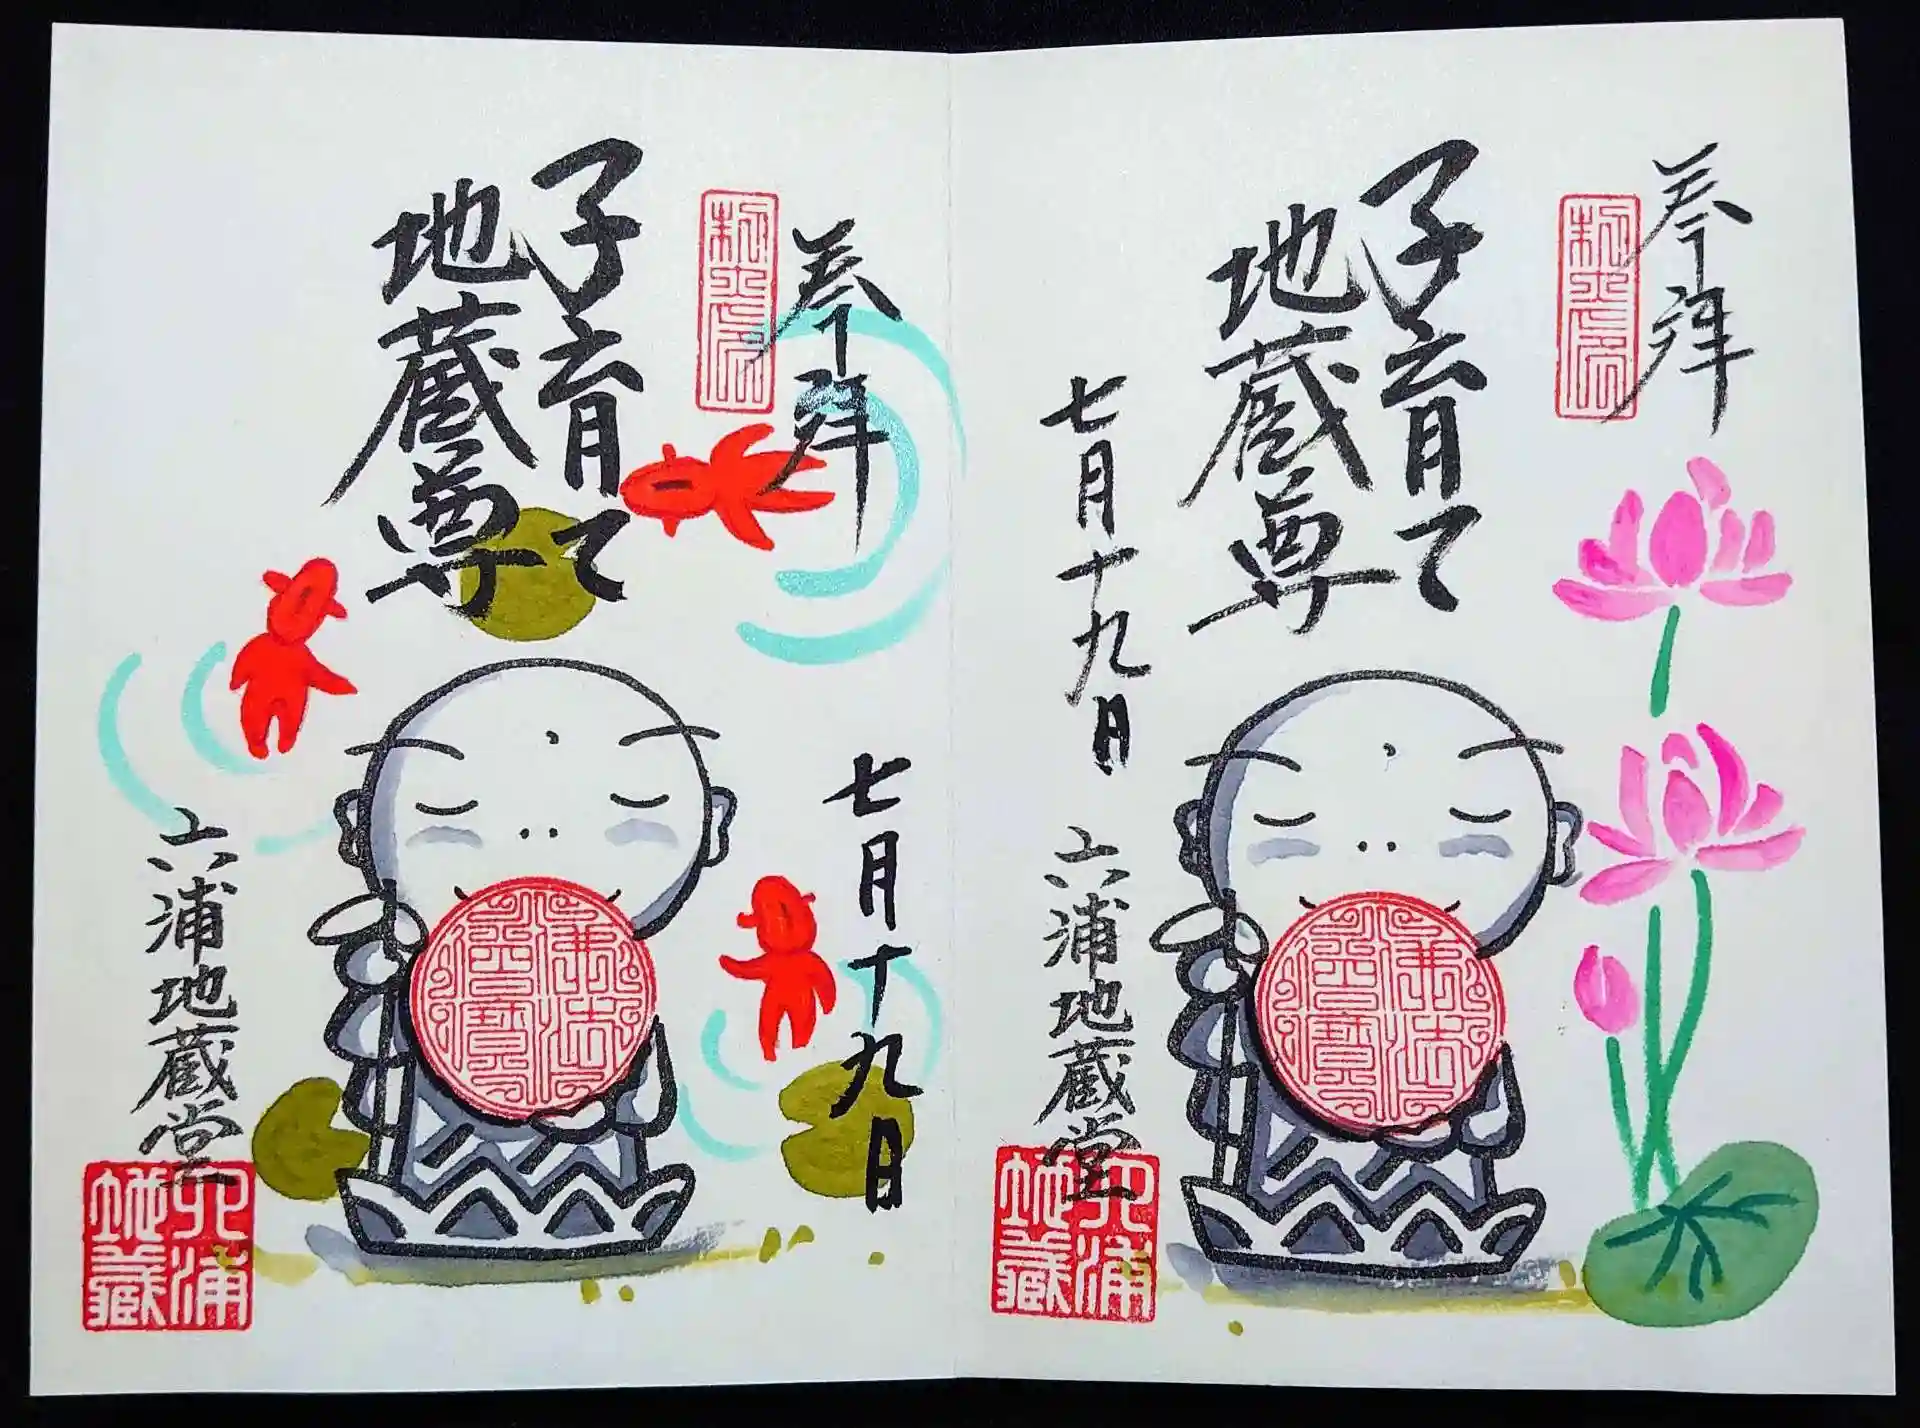 奉拝
子育て
地蔵尊
七月十九日
六浦地蔵堂
六浦
地蔵
佛法
僧寳
奉拝
子育て
地蔵尊
七月十九日
六浦地蔵堂
六浦
地蔵
佛法
僧寳